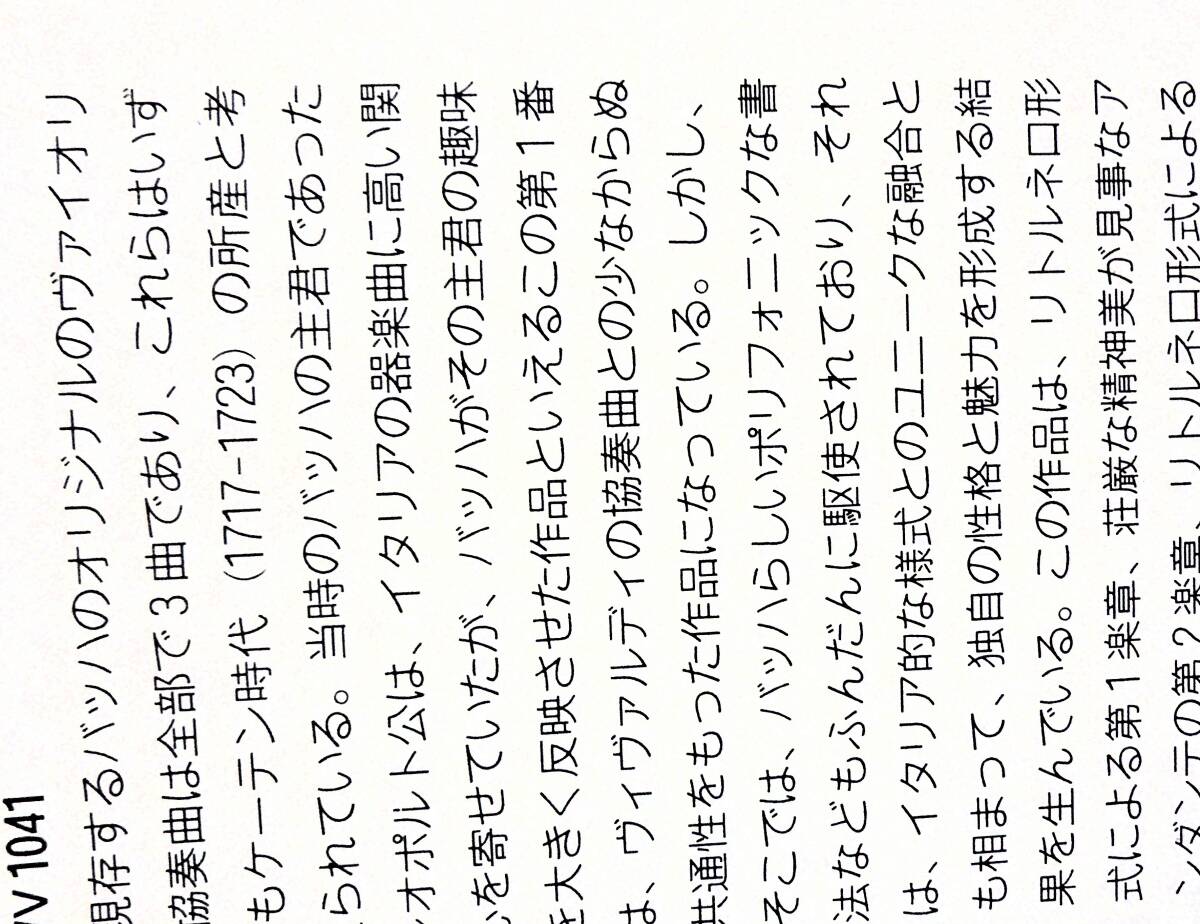 V 1041
現存するバッハのオリジナルのヴァイオリ
協奏曲は全部で3曲であり、これらはいず
もケーテン時代（1717-1723）の所産と考
られている。当時のバッハの主君であった
オポルト公は、イタリアの器楽曲に高い関
を寄せていたが、バッハがその主君の趣味
を大きく反映させた作品といえるこの第1番
は、ヴィヴァルディの協奏曲との少なからぬ
共通性をもった作品になっている。しかし、
そこでは、バッハらしいポリフォニックな書
法などもふんだんに駆使されており、それ
は、イタリア的な様式とのユニークな融合と
も相まって、独自の性格と魅力を形成する結
果を生んでいる。この作品は、リトルネロ形
式による第1楽章、荘厳な精神美が見事なア
ンダンテの第2楽章、リトルネロ形式による